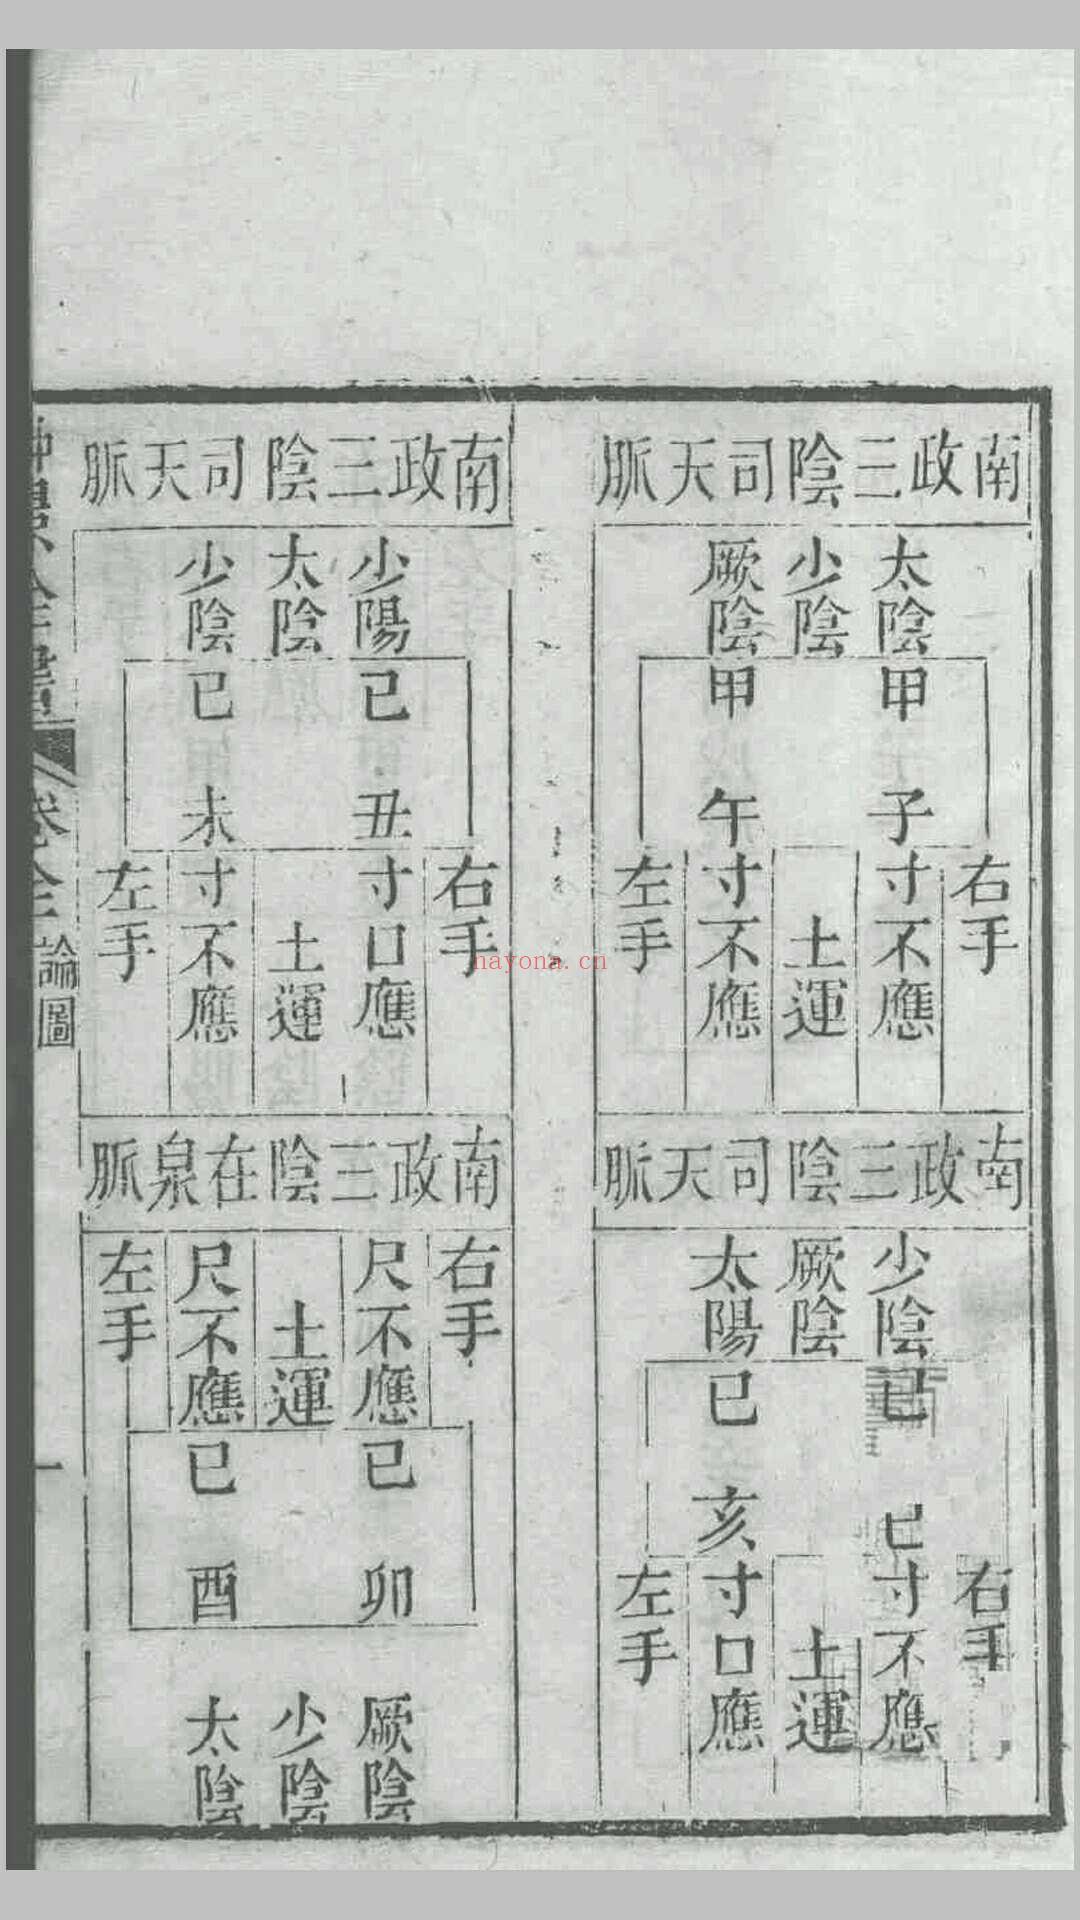 南政三陰司天脈
太陰 少陰 厥陰
甲子 甲午
右手 寸不應 土運 寸不應 左手
南政三陰司天脈
少陰 厥陰 太陽
已巳 已亥
右手 寸不應 土運 寸口應 左手
南政三陰司天脈
少陽 太陰 少陰
已丑 已未
右手 寸口應 土運 寸不應 左手
南政三陰在泉脈
右手 尺不應 土運 尺不應 左手
已卯 已酉
厥陰 少陰 太陰
卷全 論圖
一
nayona.cn